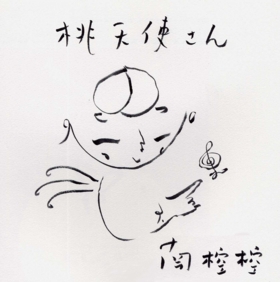 桃天使さん
蘭椌椌